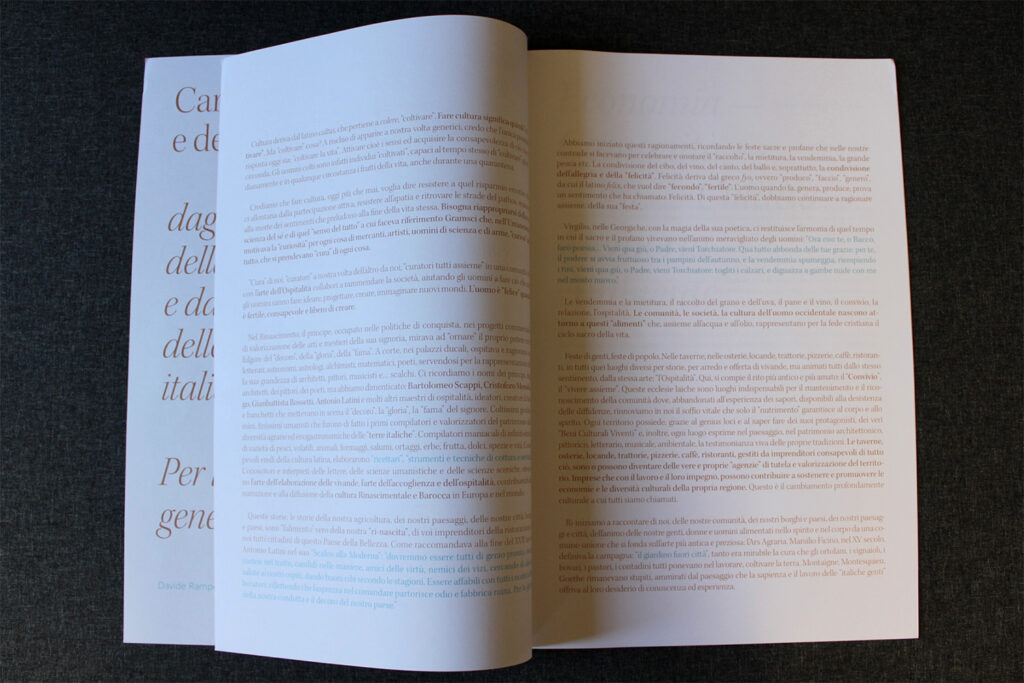 Car
e de
dag
dell
e da
dell
italia
Per l
gene
Davide Rampe
Cultura deriva dal latino cultus, che pertiene a colere, "coltivare". Fare cultura significa quindi
tivare". Ma "coltivare" cosa? A rischio di apparire a nostra volta generici, credo che l'unica
risposta oggi sia: "coltivare la vita". Attivare cioè i sensi ed acquisire la consapevolezza di
circonda. Gli uomini colti sono infatti individui "coltivati", capaci al tempo stesso di "coltivare"
dianamente e in qualunque circostanza i frutti della vita, anche durante una quarantena.
Crediamo che fare cultura, oggi più che mai, voglia dire resistere a quel risparmio emotivo
ci allontana dalla partecipazione attiva, resistere all'apatia e ritrovare le strade del pathos,
alla morte dei sentimenti che preludono alla fine della vita stessa. Bisogna riappropriarsi della
scienza del sé e di quel "senso del tutto" a cui faceva riferimento Gramsci che, nell'Umanesimo
motivava la "curiosità" per ogni cosa di mercanti, artisti, uomini di scienza e di arme, "curiosi"
tutto, che si prendevano "cura" di ogni cosa.
"Cura" di noi, "curatori" a nostra volta dell'altro da noi, "curatori tutti assieme" in una comunità
con l'arte dell'Ospitalità collabori a rammendare la società, aiutando gli uomini a fare ciò che
gli uomini sanno fare: ideare, progettare, creare, immaginare nuovi mondi. L'uomo è "felice" quando
è fertile, consapevole e libero di creare.
Nel Rinascimento, il principe, occupato nelle politiche di conquista, nei progetti commerciali
di valorizzazione delle arti e mestieri della sua signoria, mirava ad "ornare" il proprio potere
fulgore del "decoro", della "gloria", della "fama". A corte, nei palazzi ducali, ospitava e ragionava
letterati, astronomi, astrologi, alchimisti, matematici, poeti, servendosi per la rappresentazione
la sua grandezza di architetti, pittori, musicisti e... scalchi. Ci ricordiamo i nomi dei principi,
architetti, dei pittori, dei poeti, ma abbiamo dimenticato: Bartolomeo Scappi, Cristoforo Messisbugo,
go, Gianbattista Rossetti, Antonio Latini e molti altri maestri di ospitalità, ideatori, creatori
e banchetti che mettevano in scena il "decoro", la "gloria", la "fama" del signore. Coltissimi
mici, finissimi umanisti che furono di fatto i primi compilatori e valorizzatori del patrimonio
diversità agrarie ed enogastronomiche delle "terre italiche". Compilatori maniacali di infiniti elenchi
di varietà di pesci, volatili, animali, formaggi, salumi, ortaggi, erbe, frutta, dolci, spezie e vini.
pevoli eredi della cultura latina, elaborarono "ricettari", "strumenti e tecniche di cottura e
Conoscitori e interpreti delle lettere, delle scienze umanistiche e delle scienze
un farne dell'elaborazione delle vivande, l'arte dell'accoglienza e dell'ospitalità, contribuirono
narrazione e alla diffusione della cultura Rinascimentale e Barocca in Europa e nel mondo.
Queste storie: le storie della nostra agricoltura, dei nostri paesaggi, delle nostre città,
e paesi, sono "l'alimento" vero della nostra "ri-nascita", di voi imprenditori della ristorazione
noi tutti cittadini di questo Paese della Bellezza. Come raccomandava alla fine del XVII
Antonio Latini nel suo "Scalco alla Moderna": "dovremmo essere tutti di genio
cortesi nel tratto, candidi nelle maniere, amici delle virtù, nemici dei vizi, cercando
salute ai nostri ospiti, dando buoni cibi secondo le stagioni. Essere affabili con tutti i nostri
lavoratori, riflettendo che l'asprezza nel comandare partorisce odio e fabbrica ruina.
della nostra condotta e il decoro del nostro paese."
Abbiamo iniziato questi ragionamenti, ricordando le feste sacre e profane che nelle nostre
contrade si facevano per celebrare e onorare il "raccolto", la mietitura, la vendemmia, la grande
pesca etc. La condivisione del cibo, del vino, del canto, del ballo e, soprattutto, la condivisione
dell'allegria e della "felicità". Felicità deriva dal greco fyo, ovvero "produco", "faccio", "genero",
da cui il latino felix, che vuol dire "fecondo", "fertile". L'uomo quando fa, genera, produce, prova
un sentimento che ha chiamato: Felicità. Di questa "felicità", dobbiamo continuare a ragionare
assieme: della sua "festa".
Virgilio, nelle Georgiche, con la magia della sua poetica, ci restituisce l'armonia di quel tempo
in cui il sacro e il profano vivevano nell'animo meravigliato degli uomini: "Ora cuo te, o Bacco,
farò poesia... Vieni qua giù, o Padre, vieni Torchiatore. Qua tutto abbonda delle tue grazie: per te,
il podere si avvia fruttuoso tra i pampini dell'autunno, e la vendemmia spumeggia, riempiendo
i tini; vieni qua giù, o Padre, vieni Torchiatore togliti i calzari, e diguazza a gambe nude con me
nel mosto nuovo."
La vendemmia e la mietitura, il raccolto del grano e dell'uva, il pane e il vino, il convivio, la
relazione, l'ospitalità. Le comunità, le società, la cultura dell'uomo occidentale nascono at-
torno a questi "alimenti" che, assieme all'acqua e all'olio, rappresentano per la fede cristiana il
ciclo sacro della vita.
Feste di genti, feste di popolo. Nelle taverne, nelle osterie, locande, trattorie, pizzerie, caffè, ristoran-
ti, in tutti quei luoghi diversi per storie, per arredo e offerta di vivande, ma animati tutti dallo stesso
sentimento, dalla stessa arte: "l'Ospitalità". Qui, si compie il rito più antico e più amato: il "Convivio",
il "vivere assieme". Queste ecclesie laiche sono luoghi indispensabili per il mantenimento e il rico-
noscimento della comunità dove, abbandonati all'esperienza dei sapori, disponibili alla desistenza
delle diffidenze, rinnoviamo in noi il soffio vitale che solo il "nutrimento" garantisce al corpo e allo
spirito. Ogni territorio possiede, grazie al genius loci e al saper fare dei suoi protagonisti, dei veri
"Beni Culturali Viventi" e, inoltre, ogni luogo esprime nel paesaggio, nel patrimonio architettonico,
pittorico, letterario, musicale, ambientale, la testimonianza viva delle proprie tradizioni. Le taverne,
osterie, locande, trattorie, pizzerie, caffè, ristoranti, gestiti da imprenditori consapevoli di tutto
ciò, sono o possono diventare delle vere e proprie "agenzie" di tutela e valorizzazione del territo-
rio. Imprese che con il lavoro e il loro impegno, possono contribuire a sostenere e promuovere le
economie e le diversità culturali della propria regione. Questo è il cambiamento profondamente
culturale a cui tutti siamo chiamati.
Ri-iniziamo a raccontare di noi, delle nostre comunità, dei nostri borghi e paesi, dei nostri paesag-
gi e città, dell'animo delle nostre genti, donne e uomini alimentati nello spirito e nel corpo da una co-
mune unione che si fonda sull'arte più antica e preziosa: l'Ars Agraria. Marsilio Ficino, nel XV secolo,
definiva la campagna: "il giardino fuori città", tanto era mirabile la cura che gli ortolani, i vignaioli, i
bovari, i pastori, i contadini tutti ponevano nel lavorare, coltivare la terra. Montaigne, Montesquieu,
Goethe rimanevano stupiti, ammirati dal paesaggio che la sapienza e il lavoro delle "italiche genti"
offriva al loro desiderio di conoscenza ed esperienza.